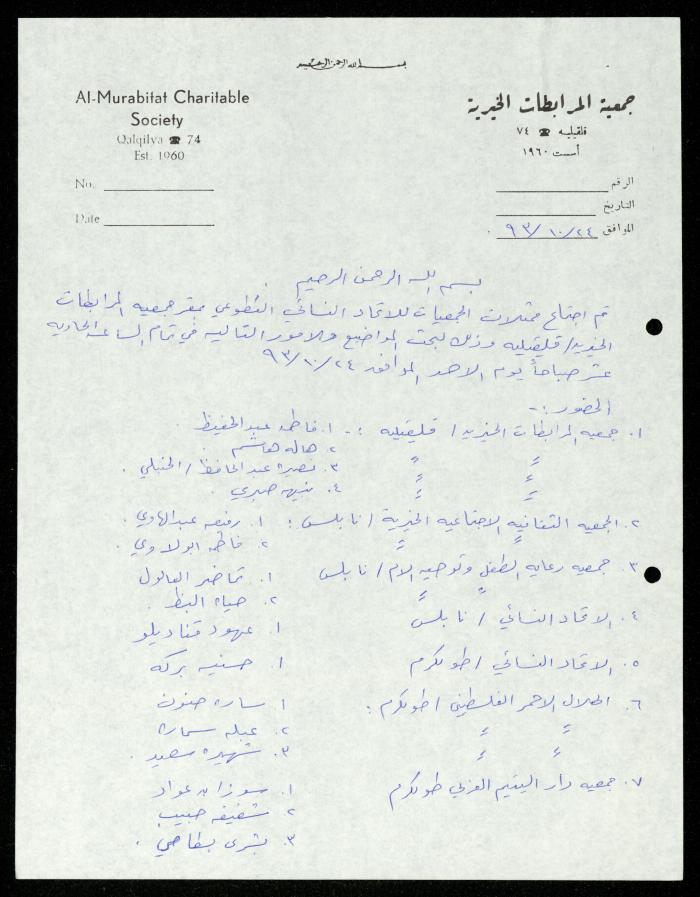 بسم الله الرحمن الرحيم
Al-Murabitat Charitable
Society
Qalqilya ☎ 74
Est. 1960
No.
Date
جمعية المرابطات الخيرية
قلقيليه ☎ ٧٤
أسست ١٩٦٠
الرقم
التاريخ
الموافق ٩٣/١٠/٢٤
بسم الله الرحمن الرحيم
تم اجتماع ممثلات الجمعيات للاتحاد النسائي التطوعي بمقر جمعيه المرابطات
الخيريه/ قلقيليه وذلك لبحث المواضيع والامور التاليه في تمام الساعه الحاديه
عشر صباحاً يوم الاحد الموافق ٩٣/١٠/٢٤
الحضور :-
١. جمعيه المرابطات الخيريه/ قلقيليه :- ١. فاطمه عبد الحفيظ
" " ٢. هاله هاشم
" " ٣. نصيره عبد الحافظ / الحنبلي .
" " ٤. نبيهه صبري .
٢. الجمعيه الثقافيه الاجتماعيه الخيرية / نابلس : ١. رفيعه عبد الهادي .
" " ٢. فاطمه ابو لاوي .
٣. جمعيه رعايه الطفل وتوجيه الام / نابلس ١. تماضر العالول
" " ٢. حياه البظ .
٤. الاتحاد النسائي / نابلس ١. عهود قناديلو
٥. الاتحاد النسائي / طولكرم ١. حسنيه بركه
٦. الهلال الاحمر الفلسطيني / طولكرم : ١. ساره حنون
" " ٢. عبله سماره
" " ٣. شهيره سعيد .
٧. جمعيه دار اليتيم العربي طولكرم ١. سوزان عواد
٢. شفيقه حبيب
٣. بشرى